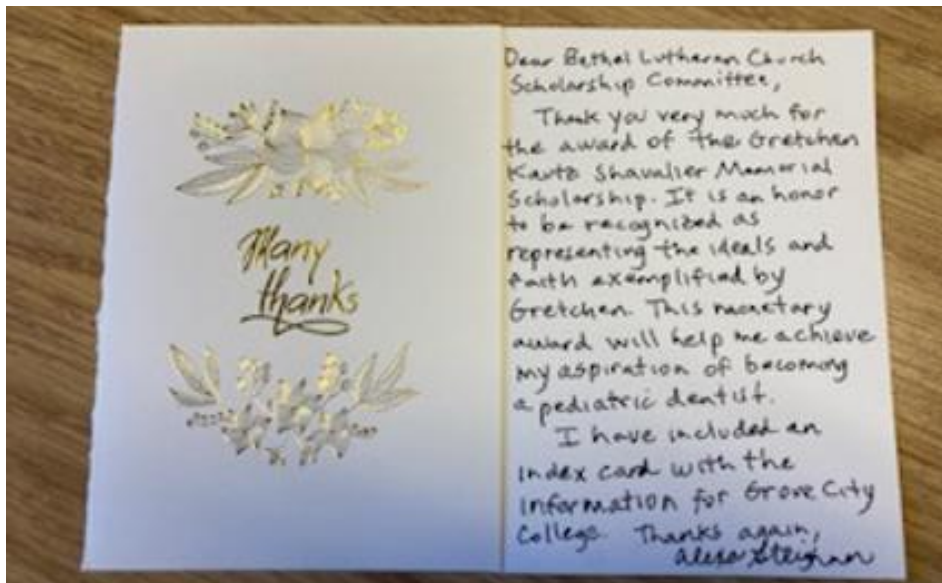 Many
thanks
Dear Bethel Lutheran Church
Scholarship Committee,
Thank you very much for
the award of the Gretchen
Kautz Shavalier Memorial
Scholarship. It is an honor
to be recognized as
representing the ideals and
faith exemplified by
Gretchen. This monetary
award will help me achieve
my aspiration of becoming
a pediatric dentist.
I have included an
index card with the
information for Grove City
College. Thanks again,